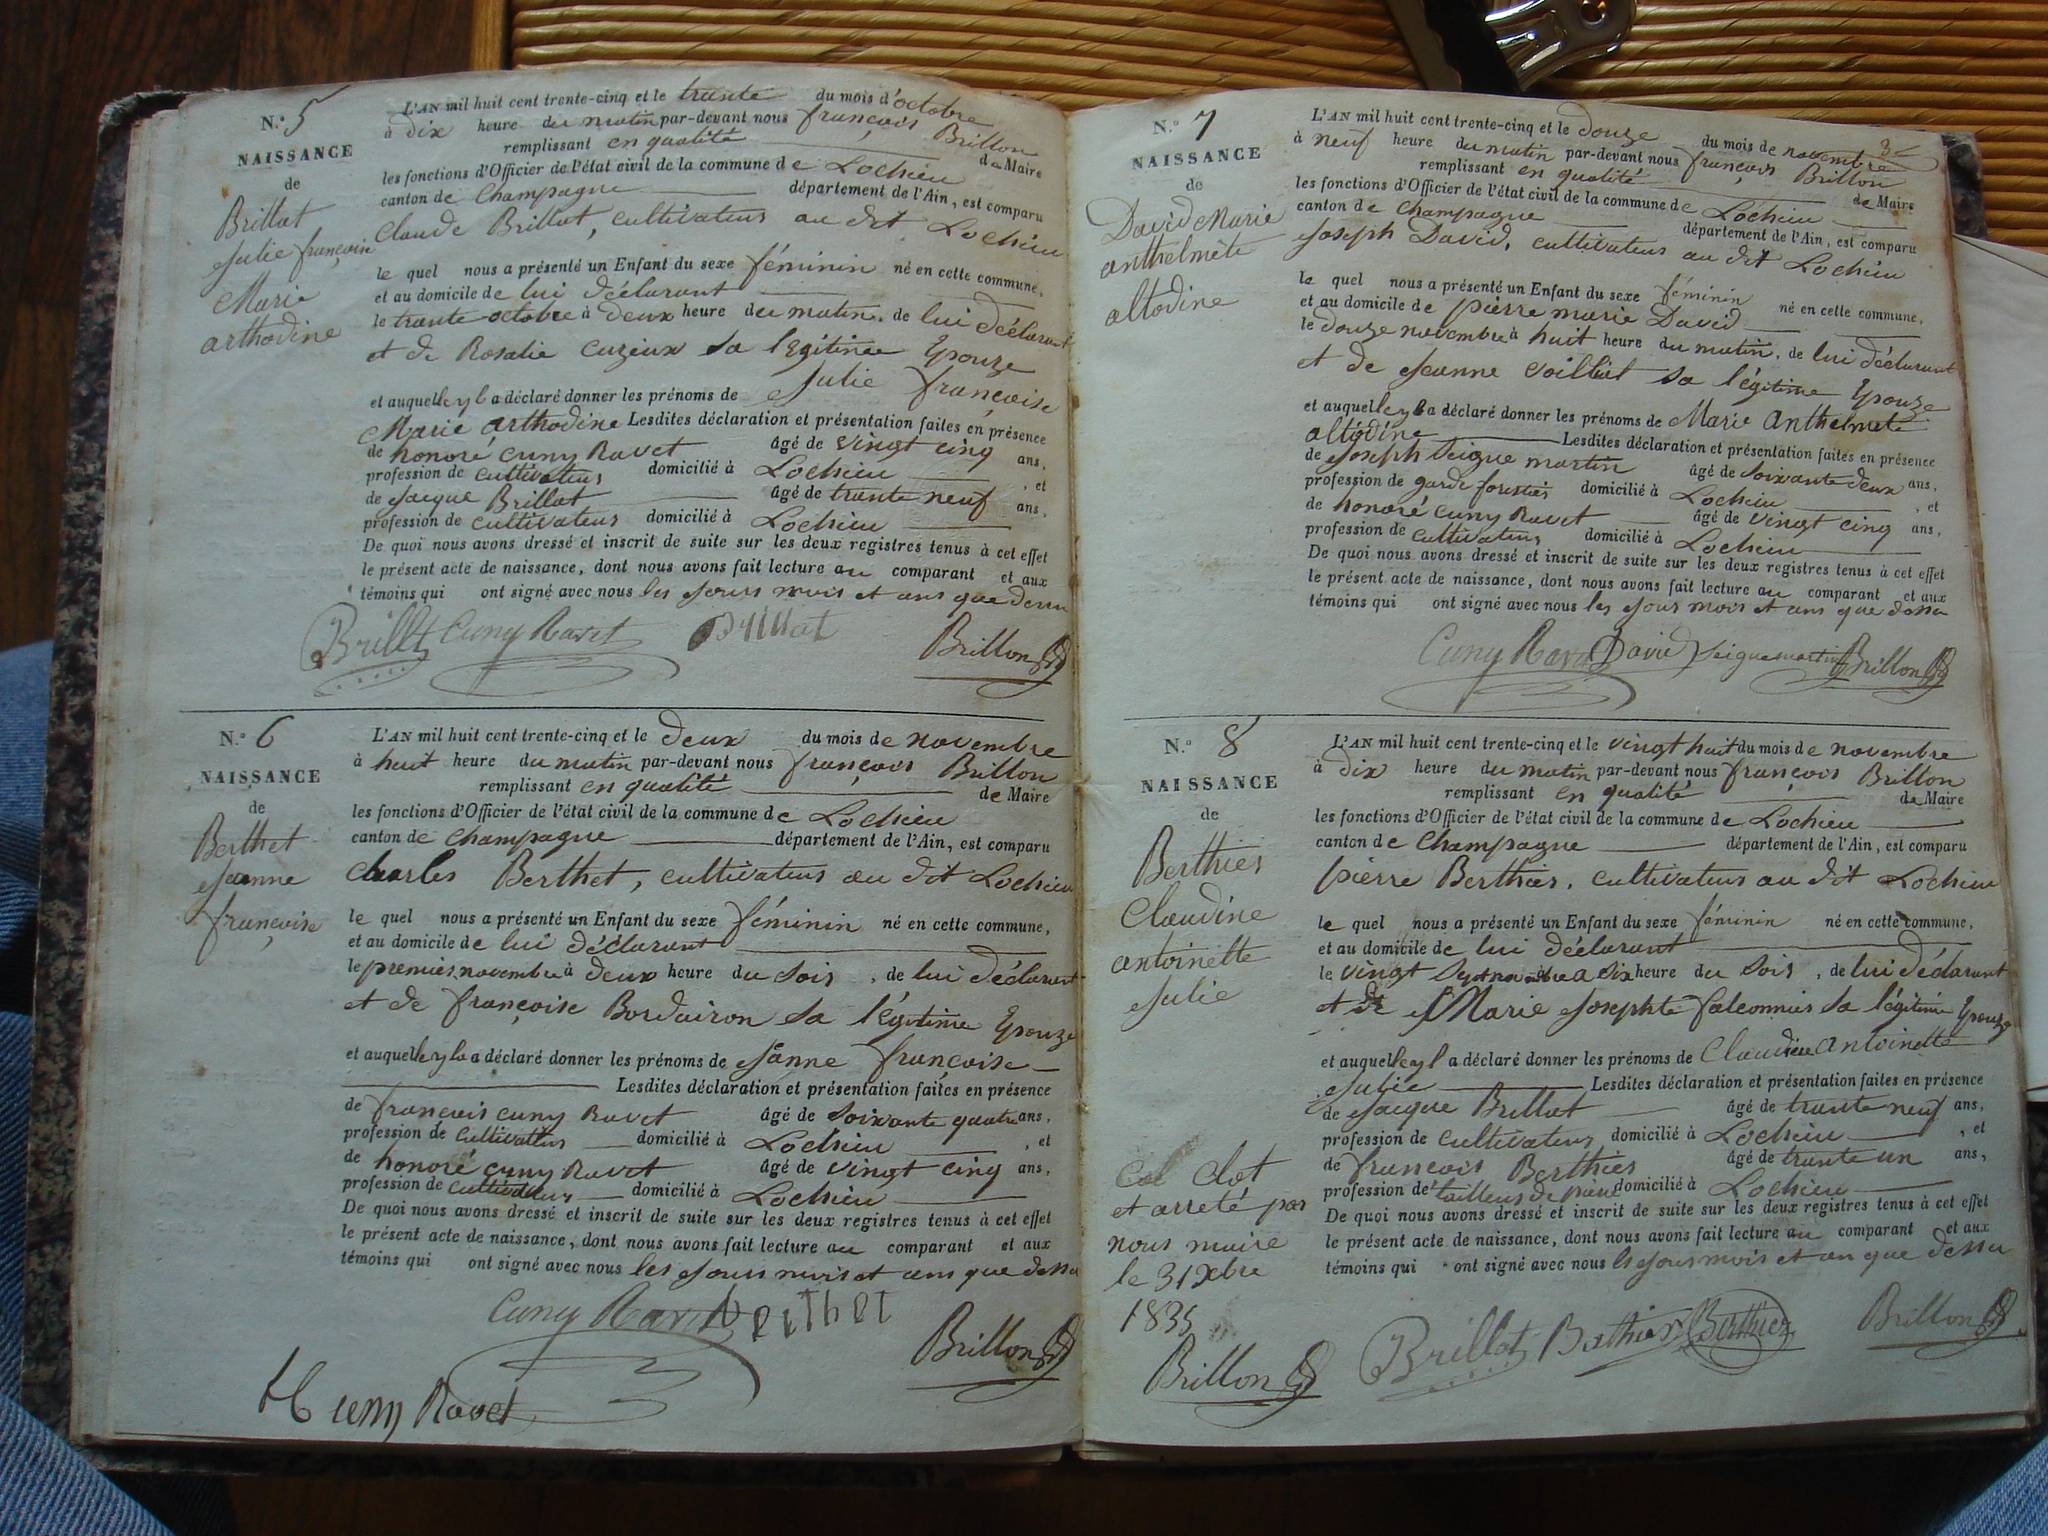 N.° 5
NAISSANCE
de
Brillat
Julie françoise
Marie
arthodine
L'AN mil huit cent trente-cinq et le trente du mois d'octobre
à dix heure du matin par-devant nous françois Brillon
remplissant en qualité de Maire
les fonctions d'Officier de l'état civil de la commune de Lochieu
canton de Champagne département de l'Ain, est comparu
Claude Brillat, cultivateur au dit Lochieu
le quel nous a présenté un Enfant du sexe féminin né en cette commune,
et au domicile de lui déclarant
le trente octobre à deux heure du matin, de lui déclarant
et de Rosalie Cuzieux sa légitime Epouze
et auquel il a déclaré donner les prénoms de Julie françoise
Marie arthodine Lesdites déclaration et présentation faites en présence
de honoré Cuny Ravet âgé de vingt cinq ans,
profession de cultivateur domicilié à Lochieu, et
de Jacque Brillat âgé de trante neuf ans,
profession de cultivateur domicilié à Lochieu
De quoi nous avons dressé et inscrit de suite sur les deux registres tenus à cet effet
le présent acte de naissance, dont nous avons fait lecture au comparant et aux
témoins qui ont signé avec nous les jours mois et ans que dessu
Brillat Cuny Ravet Brillat Brillon
N.° 6
NAISSANCE
de
Berthet
Jeanne
françoise
L'AN mil huit cent trente-cinq et le deux du mois de novembre
à huit heure du matin par-devant nous françois Brillon
remplissant en qualité de Maire
les fonctions d'Officier de l'état civil de la commune de Lochieu
canton de Champagne département de l'Ain, est comparu
Charles Berthet, cultivateur au dit Lochieu
le quel nous a présenté un Enfant du sexe féminin né en cette commune,
et au domicile de lui déclarant
le premier novembre à deux heure du soir, de lui déclarant
et de françoise Bordairon sa légitime Epouze
et auquel il a déclaré donner les prénoms de Janne françoise
Lesdites déclaration et présentation faites en présence
de françois Cuny Ravet âgé de soixante quatre ans,
profession de cultivateur domicilié à Lochieu, et
de honoré Cuny Ravet âgé de vingt cinq ans,
profession de cultivateur domicilié à Lochieu
De quoi nous avons dressé et inscrit de suite sur les deux registres tenus à cet effet
le présent acte de naissance, dont nous avons fait lecture au comparant et aux
témoins qui ont signé avec nous les jours mois et ans que dessu
Cuny Ravet Berthet
Brillon
H Cuny Ravet
N.° 7
NAISSANCE
de
David Marie
anthelmète
altodine
L'AN mil huit cent trente-cinq et le douze du mois de novembre
à neuf heure du matin par-devant nous françois Brillon
remplissant en qualité de Maire
les fonctions d'Officier de l'état civil de la commune de Lochieu
canton de Champagne département de l'Ain, est comparu
Joseph David, cultivateur au dit Lochieu
le quel nous a présenté un Enfant du sexe féminin né en cette commune,
et au domicile de pierre marie David
le douze novembre à huit heure du matin, de lui déclarant
et de Jeanne sa légitime Epouze
et auquel il a déclaré donner les prénoms de Marie Anthelmete
altodine Lesdites déclaration et présentation faites en présence
de Joseph Seigne martin âgé de soixante deux ans,
profession de garde forestier domicilié à Lochieu, et
de honoré Cuny Ravet âgé de vingt cinq ans,
profession de cultivateur domicilié à Lochieu
De quoi nous avons dressé et inscrit de suite sur les deux registres tenus à cet effet
le présent acte de naissance, dont nous avons fait lecture au comparant et aux
témoins qui ont signé avec nous les jour mois et ans que dessu
Cuny Ravet David Seignemartin Brillon
N.° 8
NAISSANCE
de
Berthier
Claudine
antoinette
Julie
L'AN mil huit cent trente-cinq et le vingt huit du mois de novembre
à dix heure du matin par-devant nous françois Brillon
remplissant en qualité de Maire
les fonctions d'Officier de l'état civil de la commune de Lochieu
canton de Champagne département de l'Ain, est comparu
pierre Berthier, cultivateur au dit Lochieu
le quel nous a présenté un Enfant du sexe féminin né en cette commune,
et au domicile de lui déclarant
le vingt sept novembre a six heure du soir, de lui déclarant
et de Marie Josephte falconnier sa légitime Epouze
et auquel il a déclaré donner les prénoms de Claudine Antoinette
Julie Lesdites déclaration et présentation faites en présence
de Jacque Brillat âgé de trante neuf ans,
profession de cultivateur domicilié à Lochieu, et
de françois Berthier âgé de trante un ans,
profession de tailleur de pierre domicilié à Lochieu
De quoi nous avons dressé et inscrit de suite sur les deux registres tenus à cet effet
le présent acte de naissance, dont nous avons fait lecture au comparant et aux
témoins qui ont signé avec nous les jour mois et an que dessu
Brillat Berthier Berthier Brillon
Clot
et arreté par
nous maire
le 31 Xbre
1835
Brillon